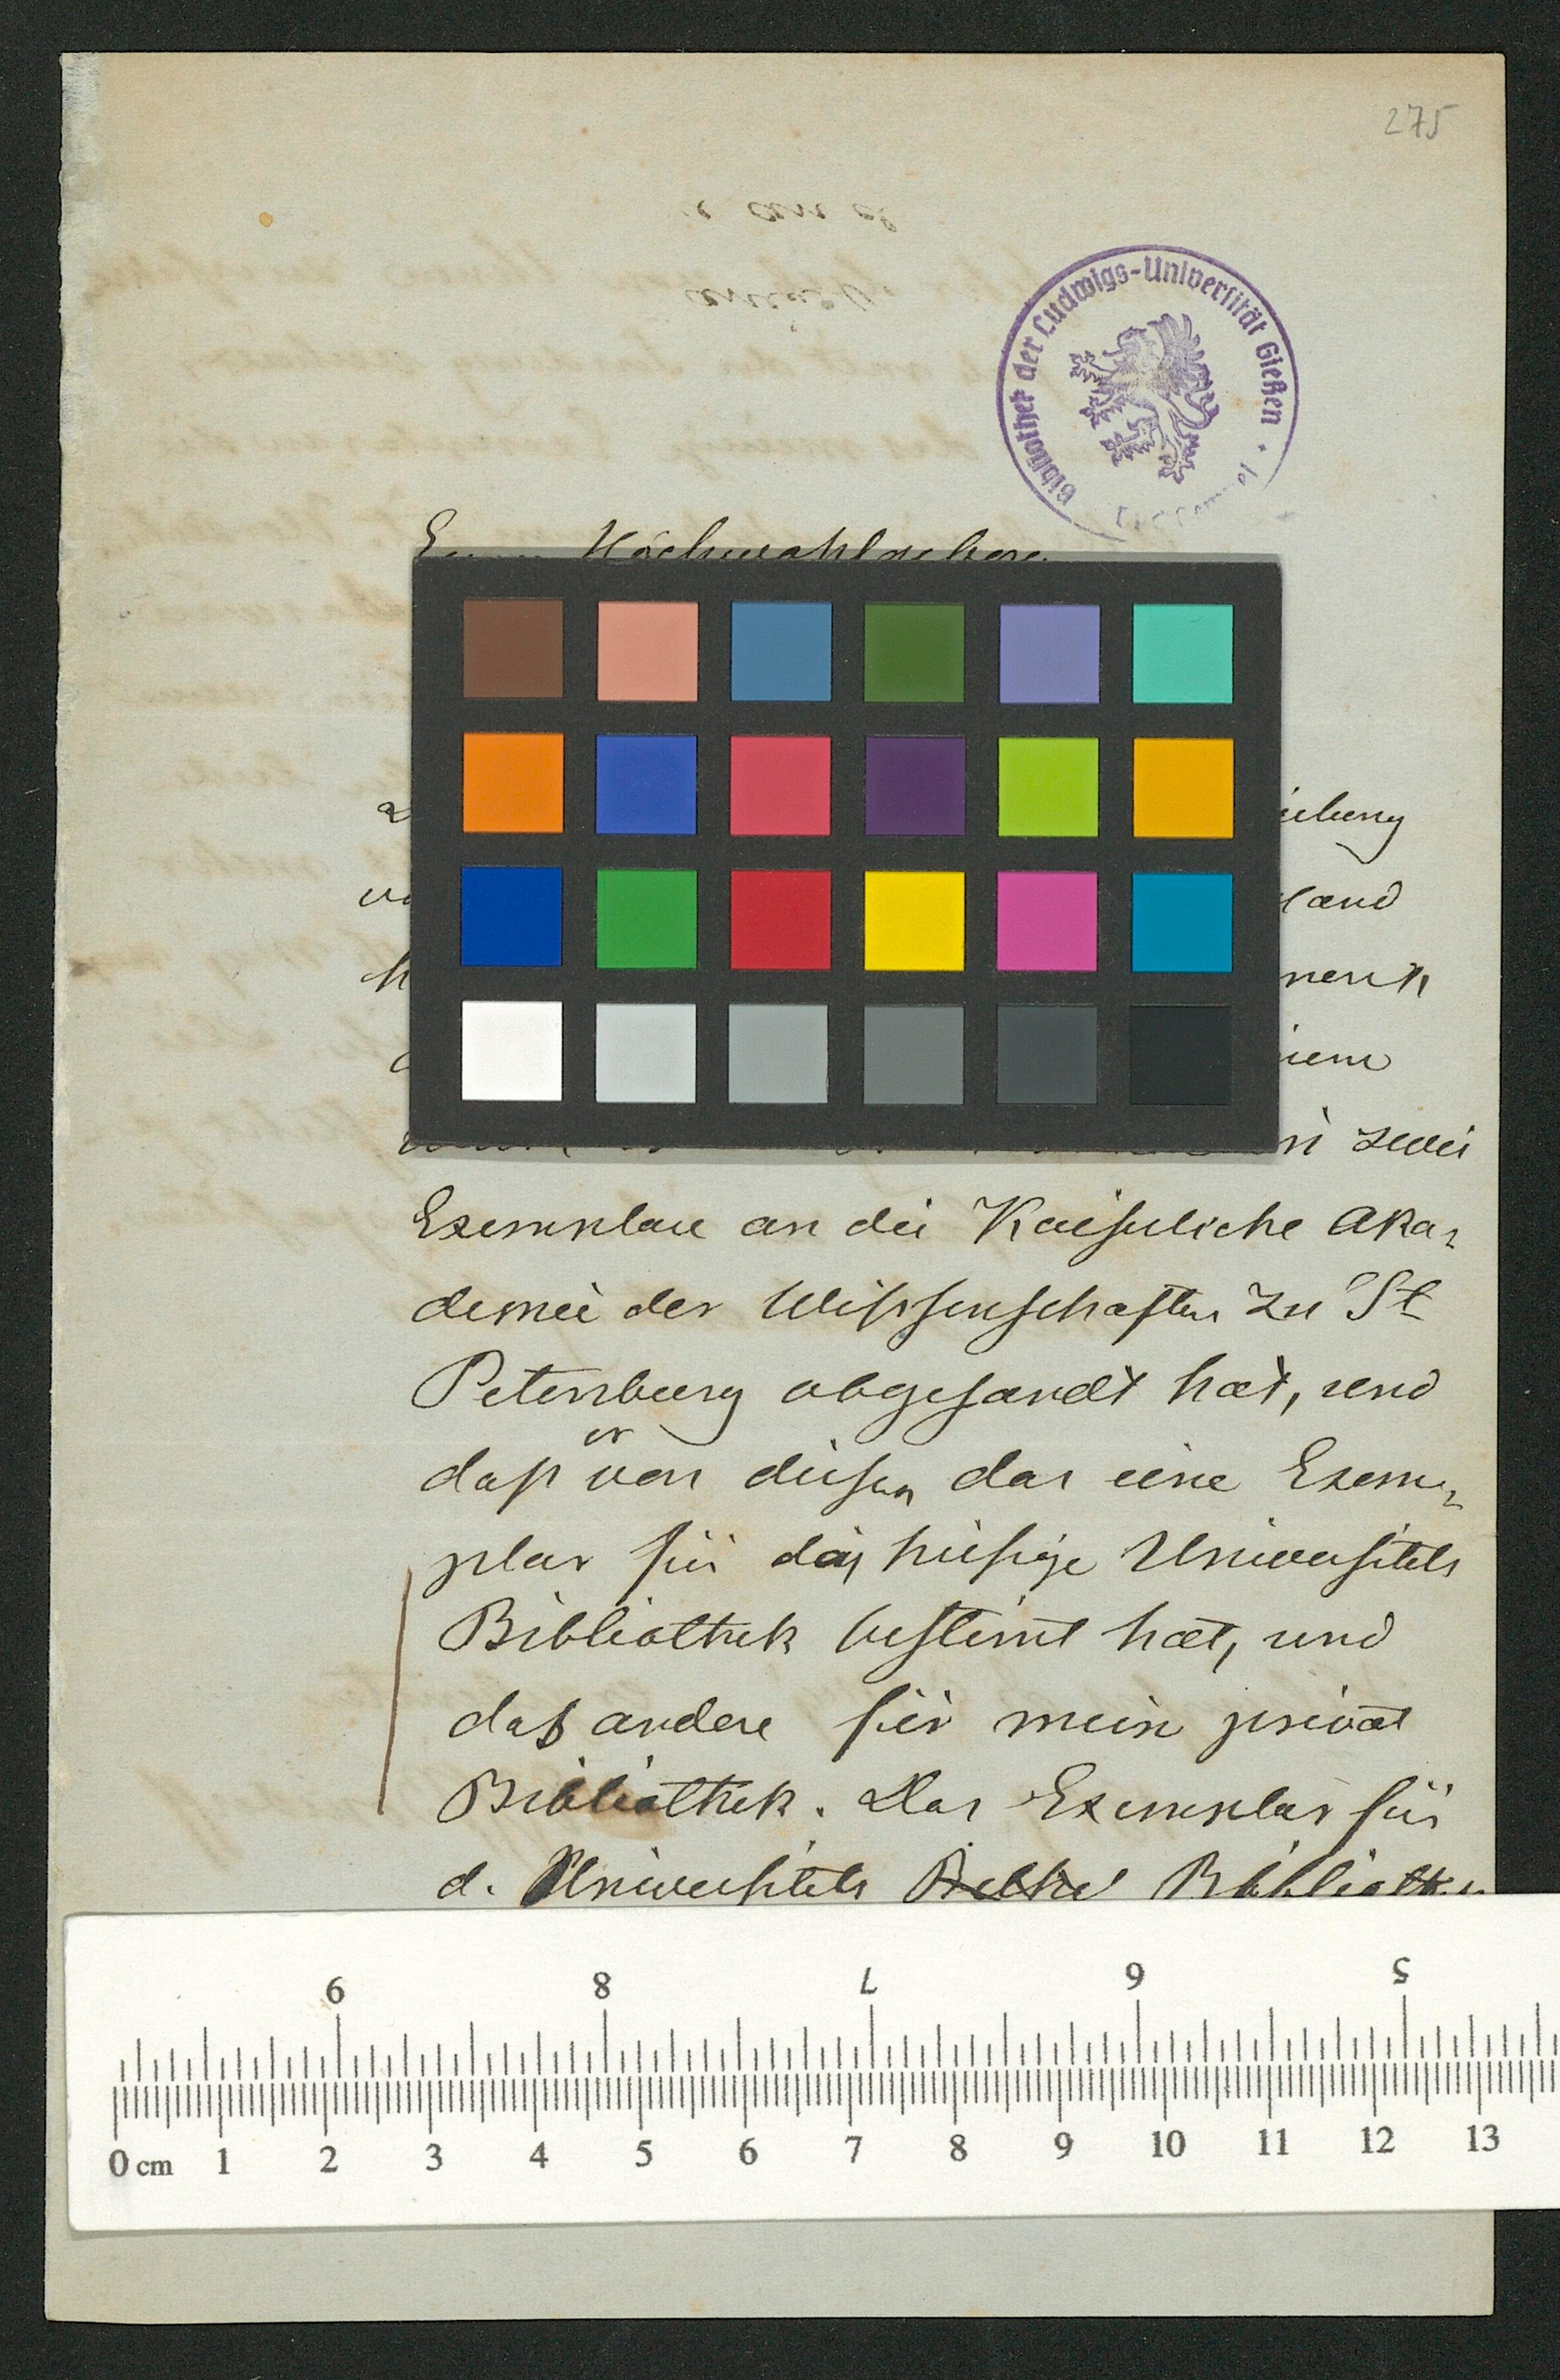 275
Bibliothek der Ludwigs-Universität Gießen
Hochwohlgeboren
zwei
Exemplare an die Kaiserliche Aka-
demie der Wissenschaften zu St
Petersburg abgesandt hat, und
er
daß von diesen das eine Exem-
plar für die hiesige Universitäts
Bibliothek bestimt hat, und
daß andere für mein privat
Bibliothek. Das Exemplar für
d. Universitäts Bibliothek
9 8 7 6 5
0 cm 1 2 3 4 5 6 7 8 9 10 11 12 13